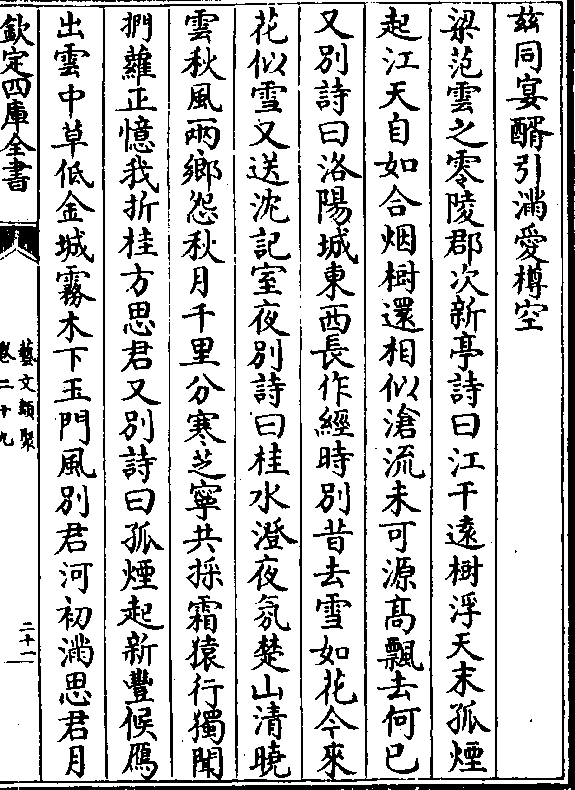 兹同宴醑引滿愛樽空
梁范雲之零陵郡次新亭詩曰江干遠樹浮天末孤煙
起江天自如合烟樹還相似滄流未可源高飄去何已
又别詩曰洛陽城東西長作經時别昔去雪如花今來
花似雪又送沈記室夜别詩曰桂水澄夜氛楚山清曉
雲秋風兩鄉怨秋月千里分寒芝寧共採霜猿行獨聞
捫蘿正憶我折桂方思君又别詩曰孤煙起新豐候鴈
出雲中草低金城霧木下玉門風别君河初滿思君月
欽定四庫全書
藝文類聚
卷二十九
二十一